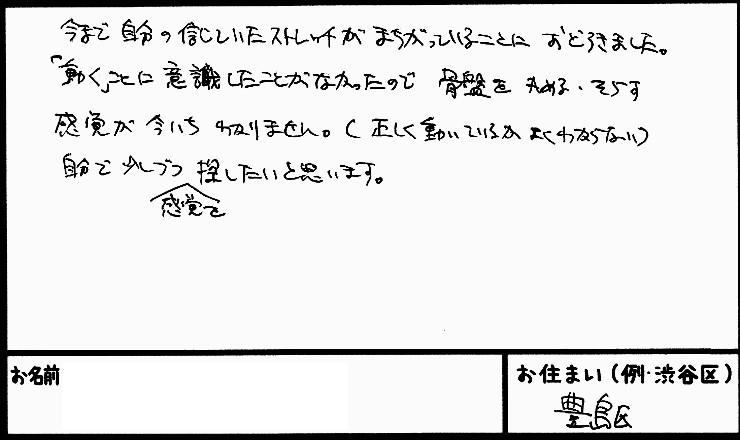 今まで自分の信じていたストレッチがまちがっていることにおどろきました。
「動く」ことに意識したことがなかったので 骨盤を丸める・そらす
感覚が今いちわかりません。(正しく動いているかよくわからない)
自分で少しづつ探したいと思います。
感覚を
お名前
お住まい(例・渋谷区)
豊島区